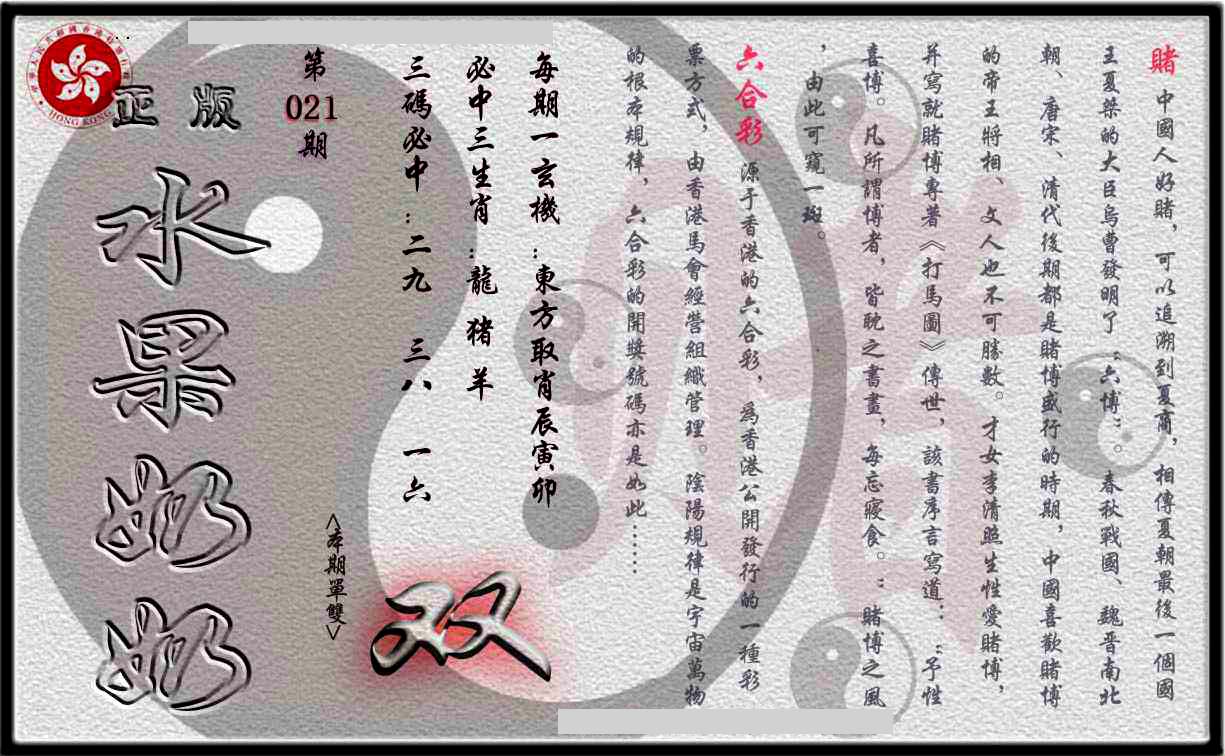 賭 中國人好賭，可以追溯到夏商，相傳夏朝最後一個國
王夏桀的大臣烏曹發明了“六博”。春秋戰國、魏晋南北
朝、唐宋、清代後期都是賭博盛行的時期，中國喜歡賭博
的帝王將相、文人也不可勝數。才女李清照生性愛賭博，
并寫就賭博專著《打馬圖》傳世，該書序言寫道：“予性
喜博。凡所謂博者，皆耽之書畫，每忘寢食。”賭博之風
，由此可窺一斑。
六合彩 源于香港的六合彩，為香港公開發行的一種彩
票方式，由香港馬會經營組織管理。陰陽規律是宇宙萬物
的根本規律，六合彩的開獎號碼亦是如此……
每期一玄機：東方取肖辰寅卯
必中三生肖：龍 猪 羊
三碼必中：二九 三八 一六
<本期單雙>
双
第
021
期
正版
水果奶奶
HONG KONG